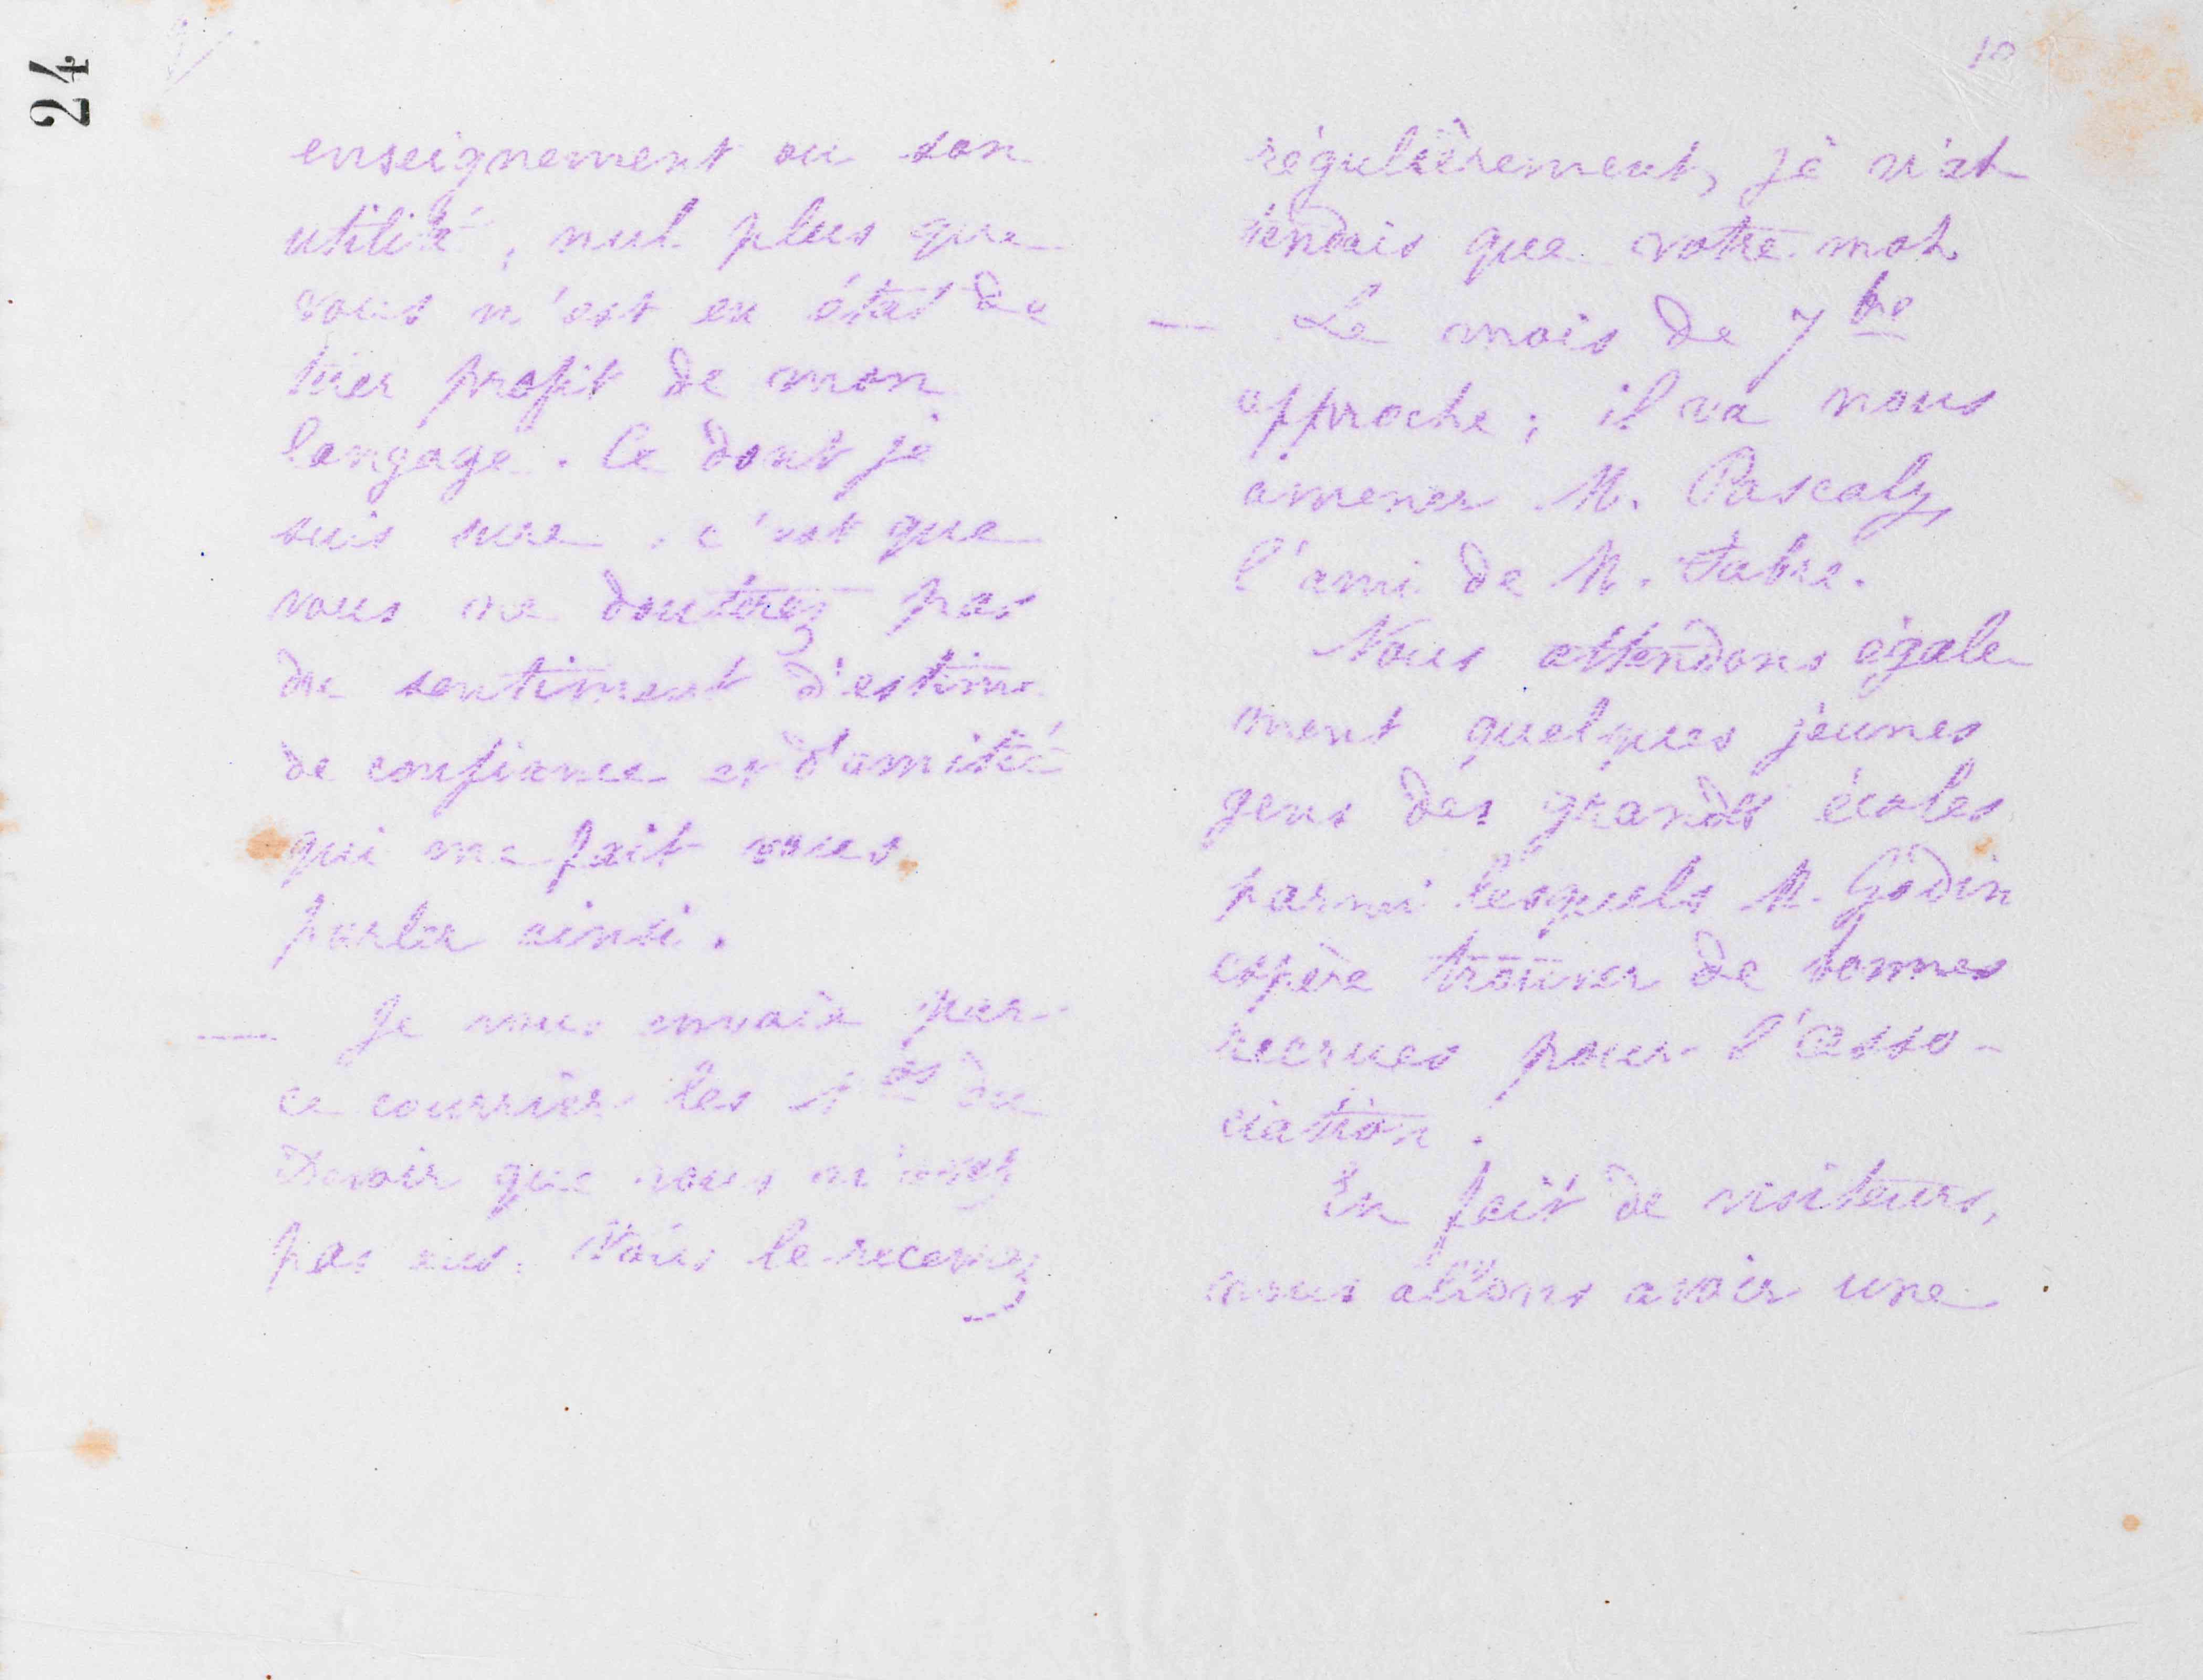 24
enseignement ou son
utilité, nul plus que
vous n'est en état de
tirer profit de mon
langage. Ce dont je
suis sure, c'est que
vous ne douterez pas
du sentiment d'estime
de confiance et d'amitié
qui me fait vous
parler ainsi.
— Je vous envoie par
ce courrier les nos du
Devoir que vous n'avez
pas eus. Vous le recevrez
10
régulièrement, je n'at
tendais que votre mot.
— Le mois de 7bre
approche; il va nous
amener M. Pascaly,
l'ami de M. Fabre.
Nous attendons égale
ment quelques jeunes
gens des grandes écoles
parmi lesquels M. Godin
espère trouver de bonnes
recrues pour l'asso-
ciation.
En fait de visiteurs,
nous allons avoir une